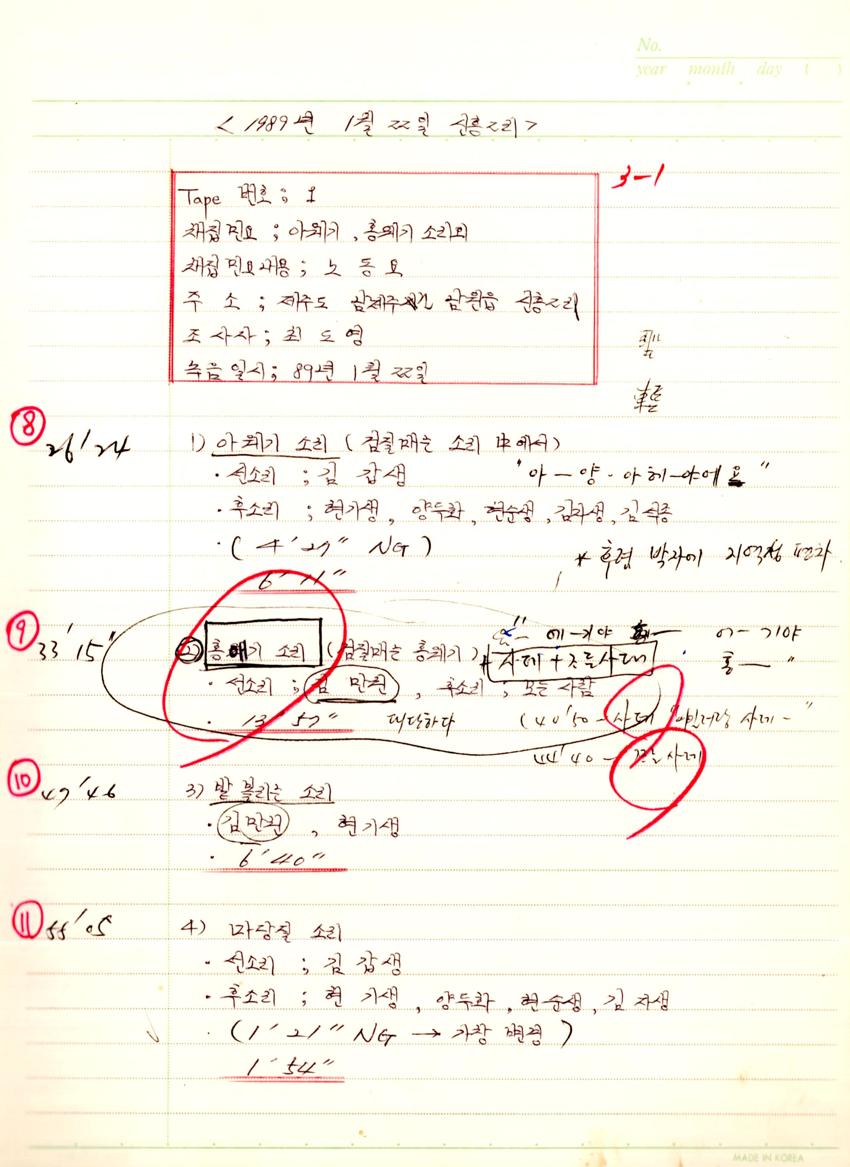 No.
year month day ( )
< 1989년 1월 22일 신흥2리 >
3-1
Tape 번호 ; 1
채집민요 ; 아외기, 홍애기 소리외
채집민요내용 ; 노동요
주 소 ; 제주도 남제주 남원읍 신흥2리
조사자 ; 최도영
녹음일시 ; 89년 1월 22일
⑧ 26'24 1) 아외기 소리 ( 검질매는 소리 中에서)
· 선소리 ; 김 갑생 " 아 - 양 - 아헤 - 야에요 "
· 후소리 ; 현기생, 양두화, 현순생, 김자생, 김
· ( 4'27" NG ) * 후렴 박자에 지역적 편차
6'11"
⑨ 33'15" ② 홍애기 소리 (검질매는 홍애기) * 사데 + 조른사데
에-기야 어-기야
홍— "
· 선소리 ; 김 만권, 후소리 ; 모든 사람
· 13'57" 대단하다 (40'50 - 사데
44'40 - 사데
⑩ 47'46 3) 밭 볼리는 소리
· 김만권, 현기생
· 6'40"
⑪ 55'05 4) 마당질 소리
· 선소리 ; 김 갑생
· 후소리 ; 현 기생, 양두화, 현순생, 김 자생
· (1'21" NG → 가창 변경 )
1'54"
MADE IN KOREA